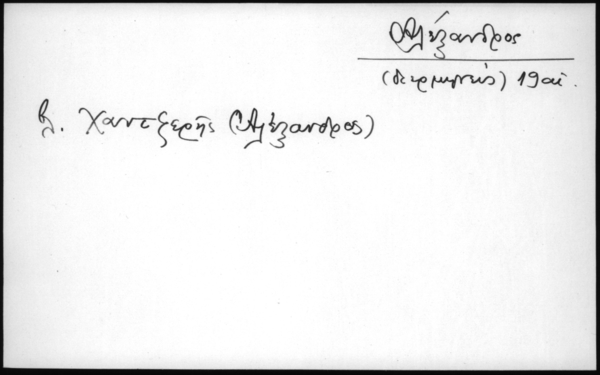 Ἀλέξανδρος
(διερμηνεύς) 19 αἰ.
βλ. Χαντζερῆς (Ἀλέξανδρος)